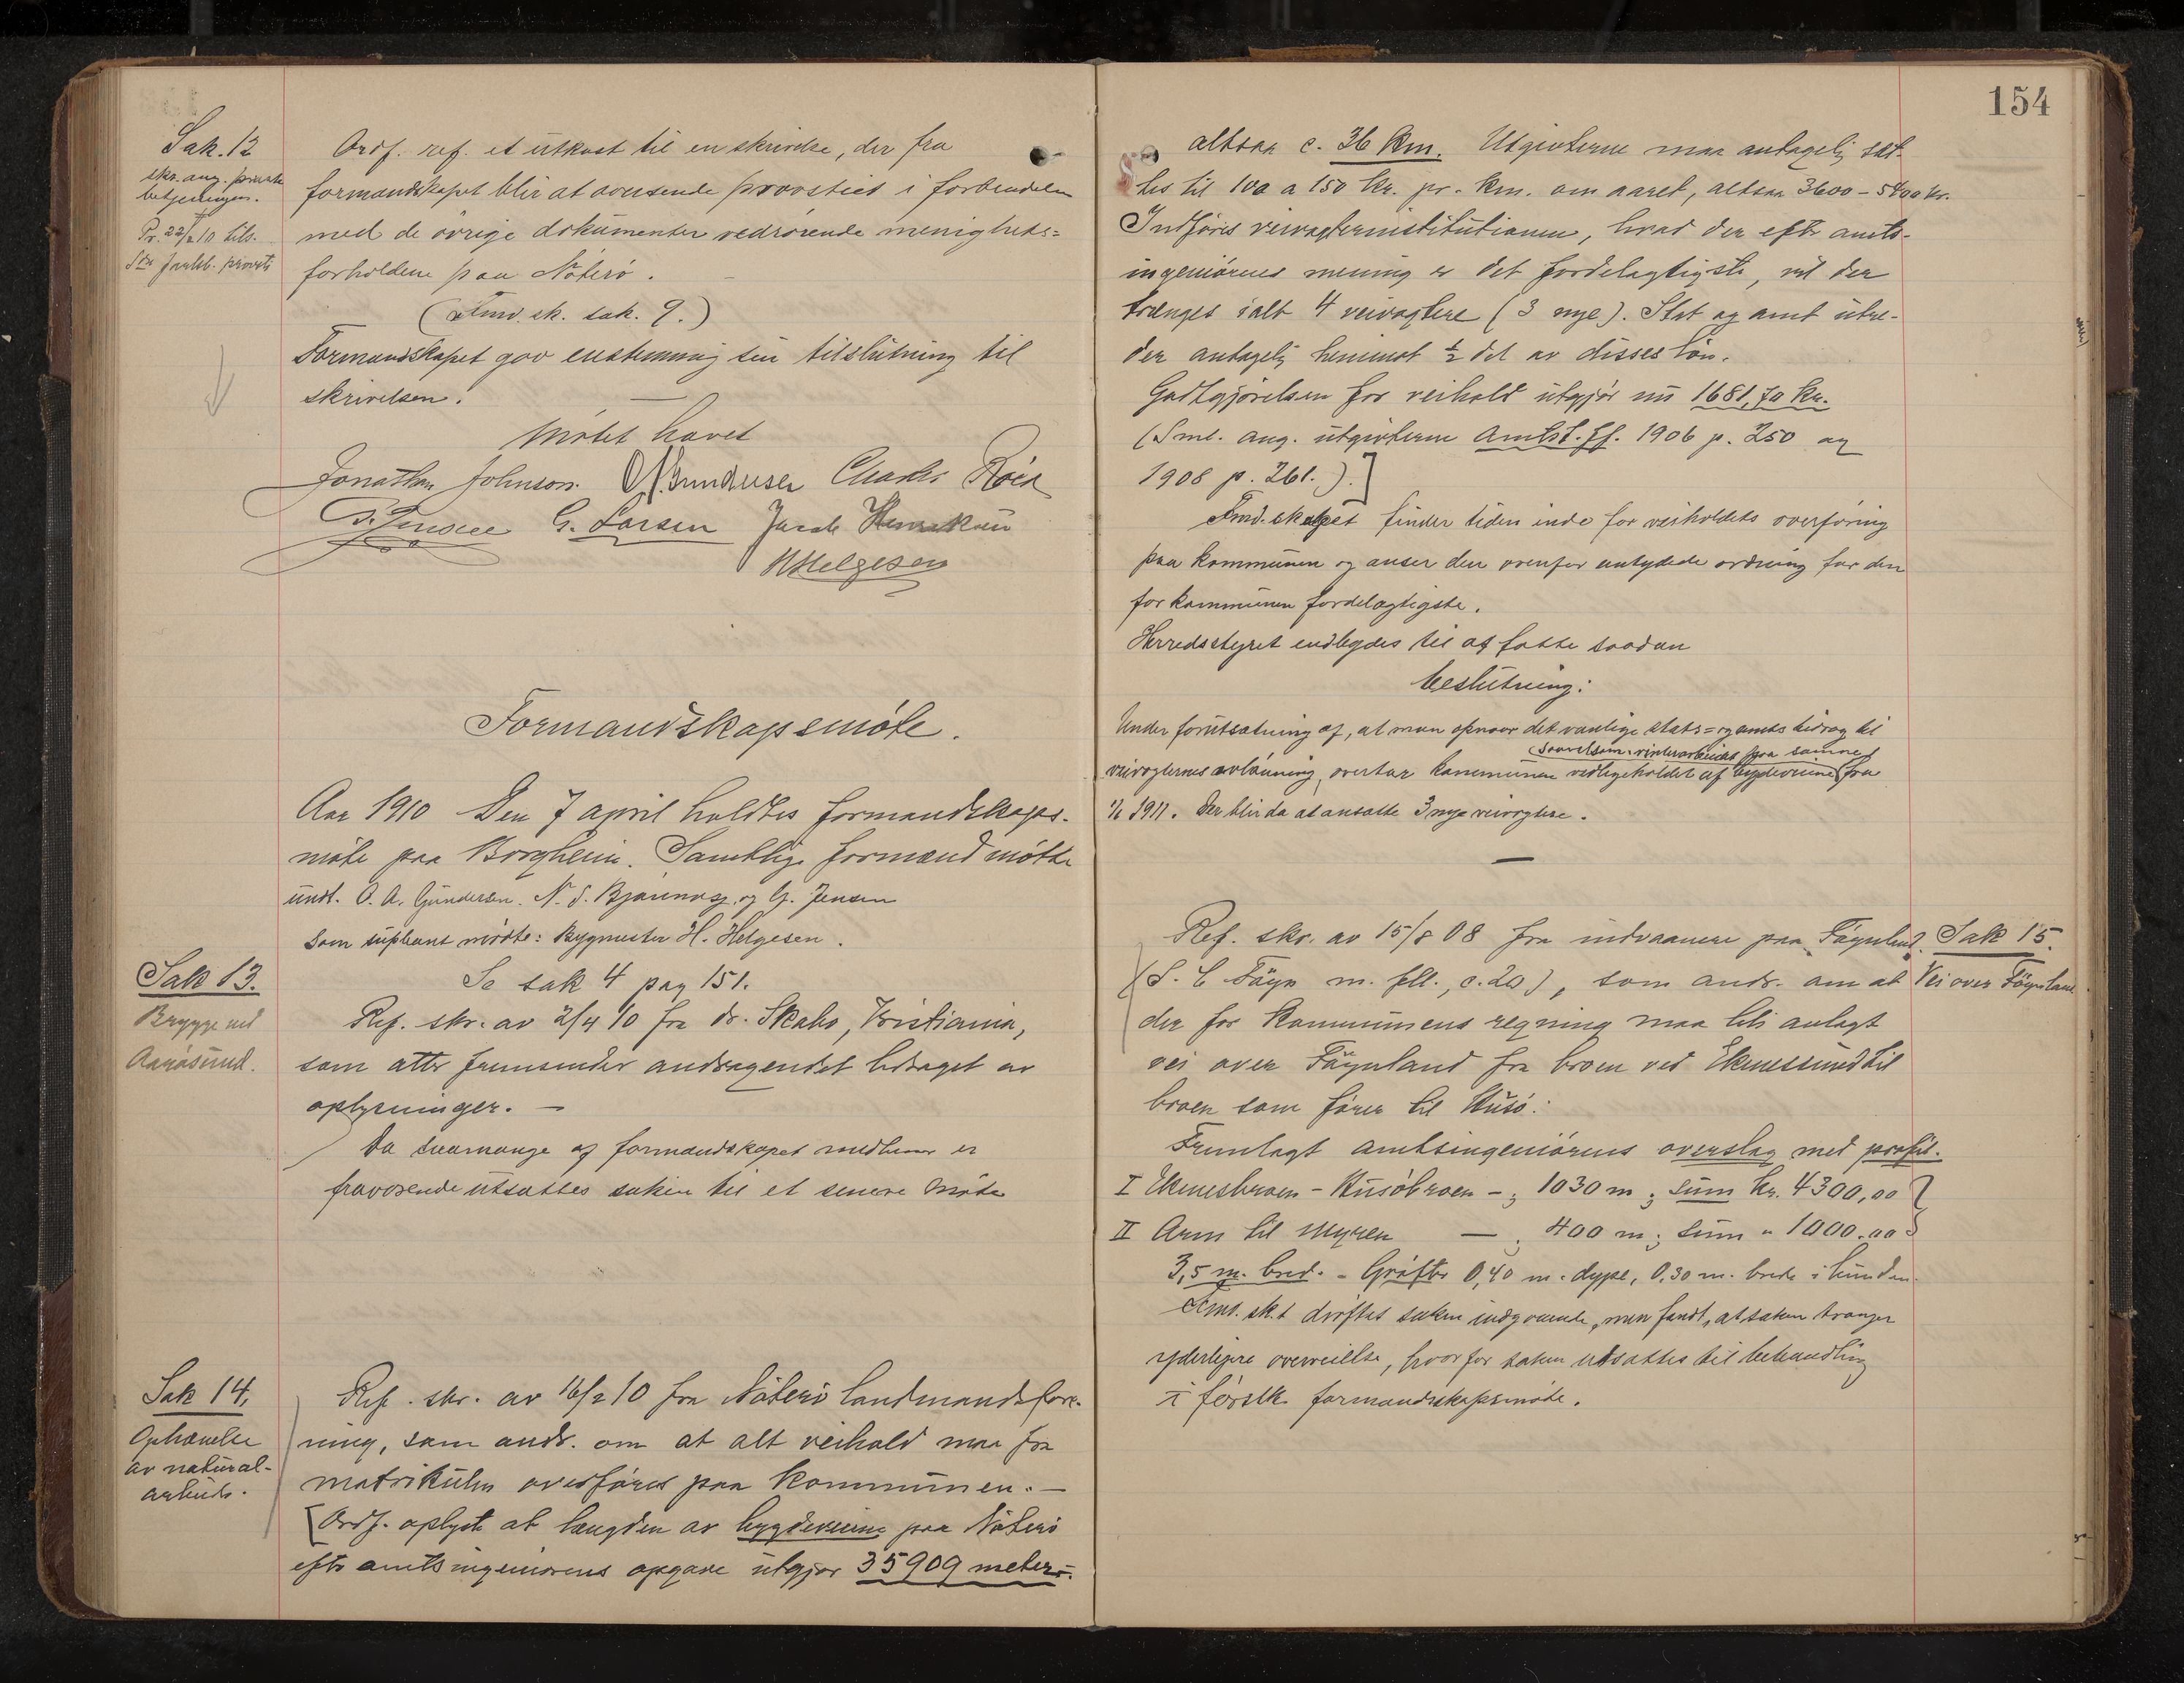 Sak. 12
skr. ang. prestebetjeningen.
Pr. 22/2 10 tils.
Ordf. ref. et utkast til en skrivelse, der fra
formandskapet blir at oversende provstiet i forbindelse
med de övrige dokumenter vedrörende menighets=
forholdene paa Nöterö. —
(Fmd. sk. sak. 9.)
Formandskapet gav enstemmig sin tilslutning til
skrivelsen. —
Mötet hævet
Jonathan Johnson. O. A. Gundersen Charles Röed
G. Jensen G. Larsen Jacob Henriksen
H Helgesen
Formandskapsmöte.
Aar 1910 Den 7 april holdtes formandskaps-
möte paa Borgheim. Samtlige formænd mötte
undt. O. A. Gundersen. N. S. Bjönness. og G. Jensen
Som supleant mödte: Bygmester H. Helgesen.
Sak 13.
Brygge ved
Aarösund.
Se sak 4 pag 151.
Ref. skr. av 2/4 10 fra dr. Skabo, Kristiania,
som atter fremsender andragendet ledsaget av
oplysninger. —
Da saamange af formandskapet medlemmer er
fraværende utsattes saken til et senere Möte
Sak 14.
Ophævelse
av natural-
arbeide.
Ref. skr. av 16/2 10 fra Nöterö Landmandsfore-
ning, som andr. om at alt veihold maa fra
matrikulen overföres paa kommunen. —
[Ordf. oplyste at længden av bygdeveiene paa Nöterö
efter amtsingeniörens opgave utgjör 35909 meter -.
154
altsaa c. 36 km. Utgivterne maa antagelig sæt-
tes til 100 a 150 kr. pr. km. om aaret, altsaa 3600 - 5400 kr.
Indföres veivogterinstitutionen, hvad der efter amts-
ingeniörens mening er det fordelagtigste, vil der
trænges ialt 4 veivogtere (3 nye). Stat og amt utre-
der antagelig henimot ½ del av disses lön.
Godtgjörelsen for veihold utgjör nu 1681,70 kr.
(Sml. ang. utgivterne Amtst. ff. 1906 p. 250 og
1908 p. 261.).]
Fmd. skapet finder tiden inde for veiholdets overföring
paa kommunen og anser den ovenfor antydede ordning for den
for kommunen fordelagtigste.
Herredsstyret indbydes til at fatte saadan
beslutning:
Under forutsætning af, at man opnaar det vanlige stats= og amts bidrag til
(saavelsom vinterarbeidet paa samme)
veivogternes avlönning, overtar kommunen vedligeholdet af bygdeveiene fra
1/1 1911. Der blir da at ansætte 3 nye veivogtere.
—
Sak 15.
Vei over Föynland
Ref. skr. av 15/8 08 fra indvaanere paa Föynland.
(S. C Föyn m. fll., c. 20), som andr. om at
der for kommunens regning maa bli anlagt
vei over Föynland fra broen ved Ekenessund til
broen som förer til Husö.
Fremlagt amtsingeniörens overslag med profil.
I Ekenesbroen - Husöbroen - ; 1030 m ; sum kr. 4300,00
II Arm til Myren — ; 400 m ; sum " 1000.00
3,5 m. bred. - Gröfter 0,40 m. dype, 0,30 m. brede i bunden.
Fmd. sk.t dröftet saken indgaaende, men fandt, at saken trænger
yderligere overveielse, hvorfor saken utsattes til behandling
i förstk. formandskapsmöte.